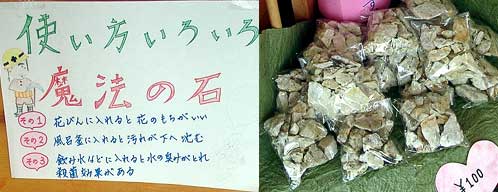 使い方いろいろ
魔法の石
その1 花びんに入れると花のもちがいい
その2 風呂釜に入れると汚れが下へ沈む
その3 飲み水などに入れると水の臭みがとれ
殺菌効果がある
¥100